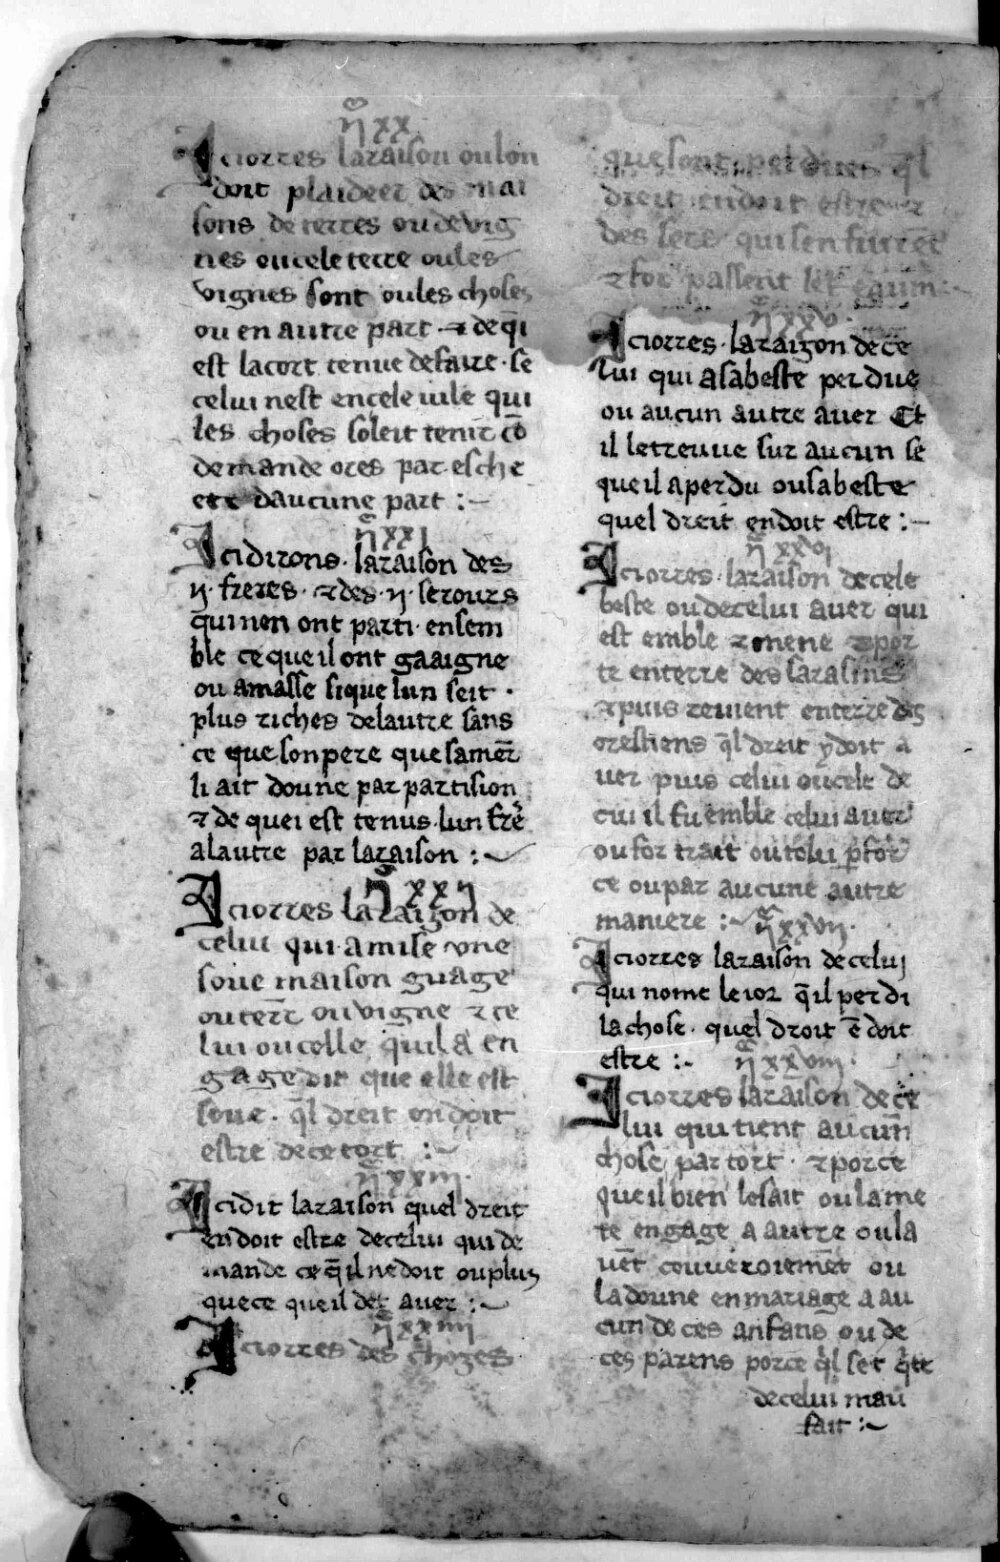 ñ xx
Iciorres laraison oulon
doit plaideer des mai
sons deterres oudevig
nes oucele terre oules
vignes sont oules choses
ou en autre part ⁊ deq̄i
est lacort tenue defaire · se
celui nest encele uile qui
les choses soleit tenir cō
demande ores par esche
ete daucune part :~
ñ xxi
Icidirons · laraison des
ii · freres · ⁊des · ii · serours
quinen ont parti · ensem
ble ceque il ont gaaigne
ou amasse sique lun seit ·
plus riches delautre sans
ce que sonpere que samer̄
li ait doune par partision
⁊ de quei est tenus · lun frē
alautre par laraison :~
ñ xxii
Iciorres laraizon de
celui qui · amise vne
soue maison guage
outerr̄ ouvigne ⁊ ce
lui oucelle quila en
gage dit que elle est
soue · q̄l dreit endoit
estre decetort :~
ñ xxiii ·
Icidit laraison quel dreit
endoit estre decelui quide
mande ce q̄ il nedoit ouplus
quece que il det auer :~
ñ xxiiii
Iciorres des chozes
quesont perdues q̄l
dreit endoit estre ⁊
des sers quisenfuirēt
⁊for passent
ñ xxv ·
Iciorres · laraizon dece
lui qui asabeste perdue
ou aucun autre auer Et
il letreuue sur aucun se
que il aperdu ousabeste
quel dreit endoit estre :~
ñ xxvi
Iciorres · laraison decele
beste oudecelui auer qui
est emble ⁊ mene ⁊por
te enterre des sarasins
⁊puis reuient enterre des
crestiens q̄l dreit ydoit a
uer puis celui oucele de
cui il fu emble celui auer
oufortrait outolu p̄for
ce oupar aucune autre
maniere :~
ñ xxvii ·
Iciorres laraison decelui
qui nome leior q̄ il perdi
lachose · quel droit ē doit
estre :~
ñ xxviii ·
Iciorres laraison dece
lui qui tient aucun̄
chose par tort · ⁊porce
que il bien lesait oulame
te engage a autre oula
uēt couueroiemēt ou
ladoune enmariage a au
cun de ces anfans ou de
ces parens porce q̄l set q̄te
decelui mau
fait :~